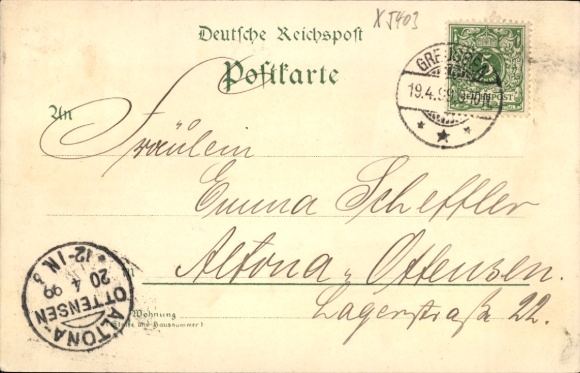 X J403
Deutsche Reichspost
Postkarte
An
19.4.99
REICHSPOST
Fräulein
Emma Scheffler
Altona-Ottensen.
Lagerstraße 22.
Wohnung
(Straße und Hausnummer)
ALTONA-
OTTENSEN
20 4 99
12-1N